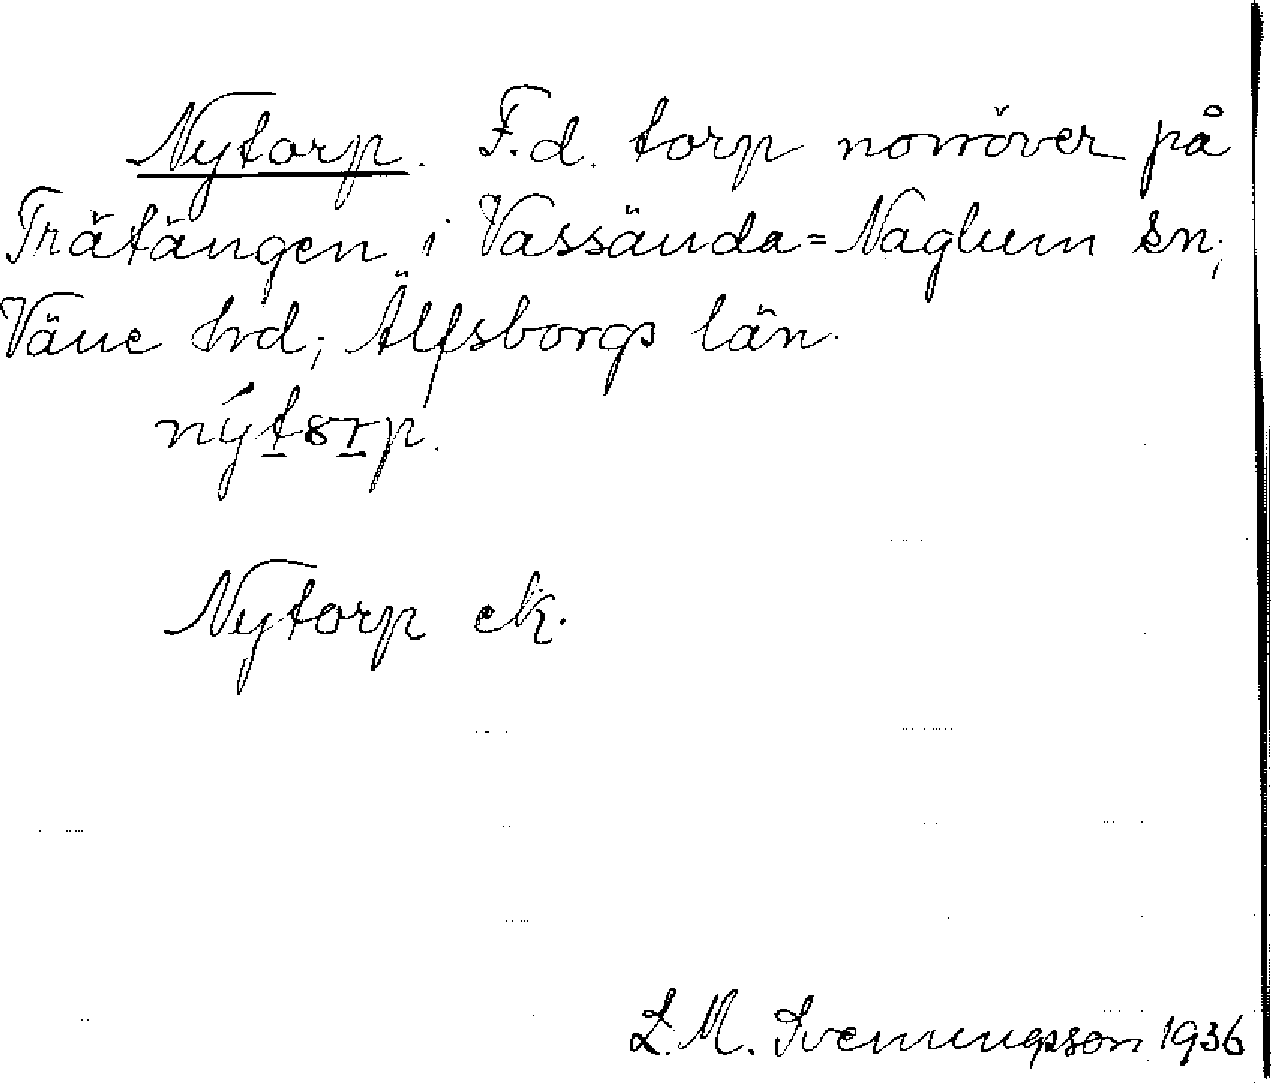 Nytorp. F.d. torp norröver på
Trätängen i Vassända=Naglum sn;
Väne hrd; Älfsborgs län.
nýtorp.
Nytorp ek.
L. M. Svenungsson 1936